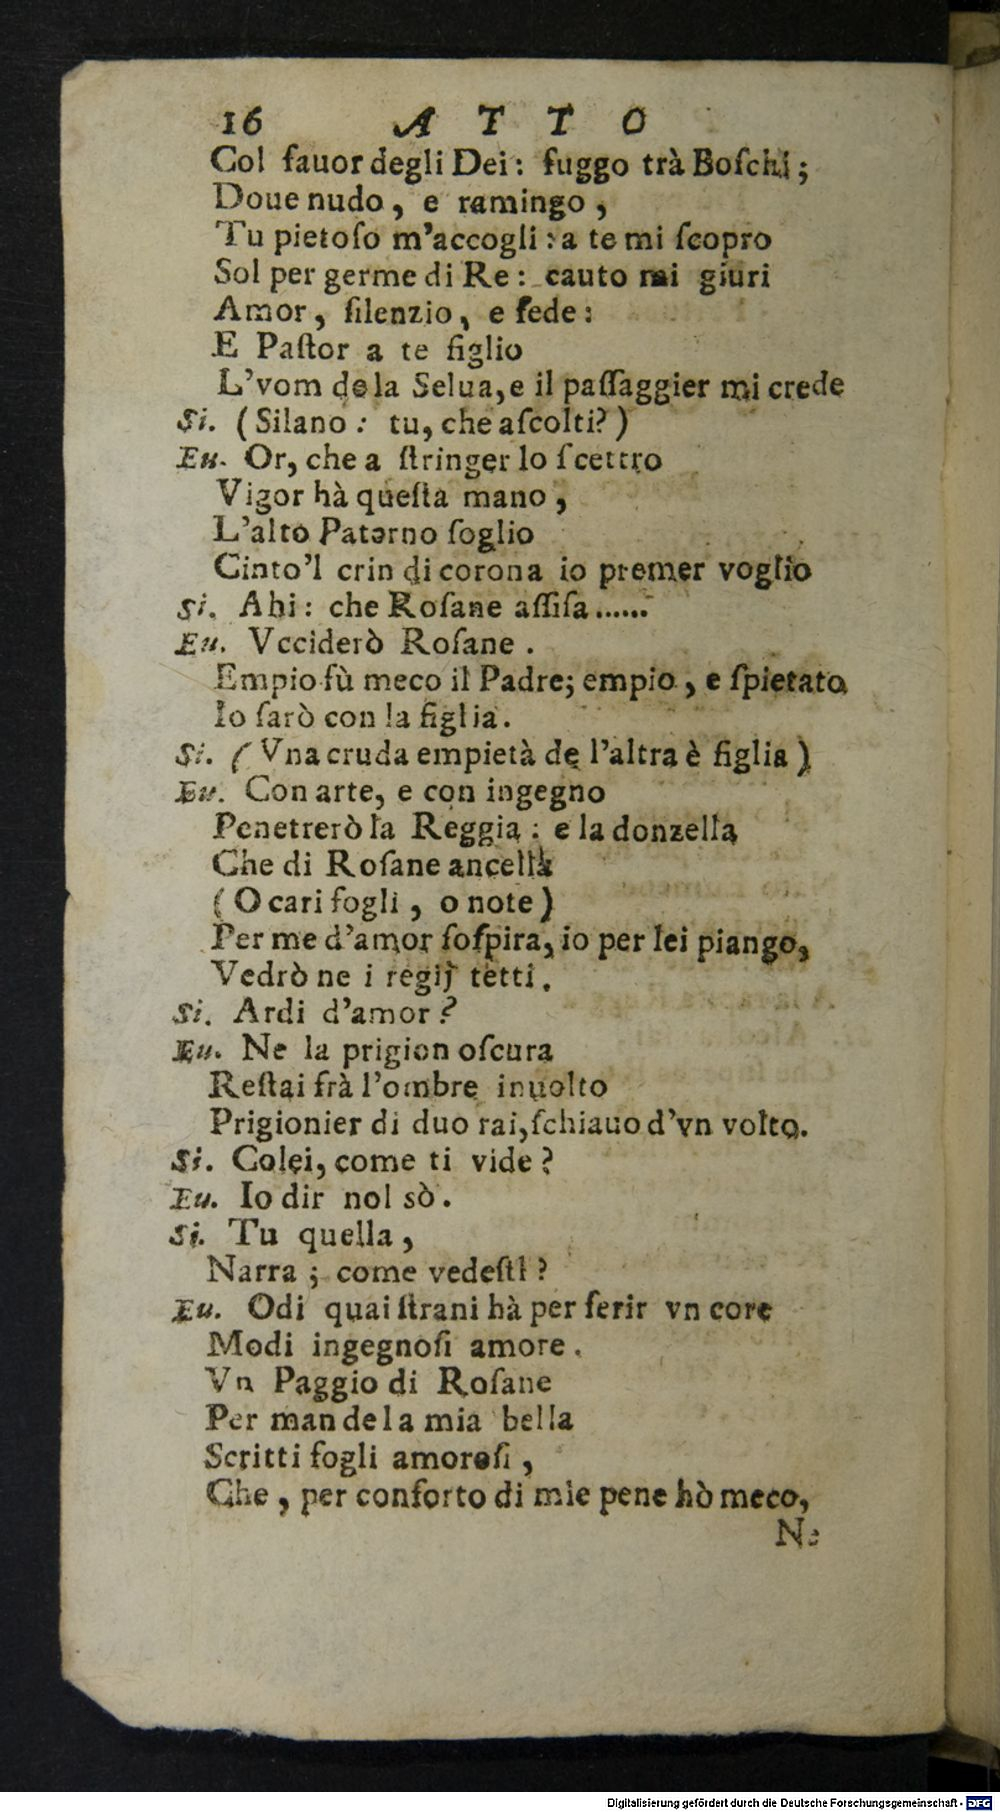 16 ATTO
Col fauor degli Dei: fuggo trà Boſchi;
Doue nudo, e ramingo,
Tu pietoſo m'accogli: a te mi ſcopro
Sol per germe di Re: cauto mi giuri
Amor, ſilenzio, e fede:
E Paſtor a te figlio
L'vom de la Selua, e il paſſaggier mi crede
Si. (Silano: tu, che aſcolti?)
Eu. Or, che a ſtringer lo ſcettro
Vigor hà queſta mano,
L'alto Paterno ſoglio
Cinto'l crin di corona io premer voglio
Si. Ahi: che Roſane aſſiſa......
Eu. Vcciderò Roſane.
Empio fù meco il Padre; empio, e ſpietato
Io ſarò con la figlia.
Si. (Vna cruda empietà de l'altra è figlia)
Eu. Con arte, e con ingegno
Penetrerò la Reggia: e la donzella
Che di Roſane ancella
(O cari fogli, o note)
Per me d'amor ſoſpira, io per lei piango,
Vedrò ne i regij tetti.
Si. Ardi d'amor?
Eu. Ne la prigion oſcura
Reſtai frà l'ombre inuolto
Prigionier di duo rai, ſchiauo d'vn volto.
Si. Colei, come ti vide?
Eu. Io dir nol sò.
Si. Tu quella,
Narra; come vedeſti?
Eu. Odi quai ſtrani hà per ferir vn core
Modi ingegnoſi amore.
Vn Paggio di Roſane
Per man de la mia bella
Scritti fogli amoroſi,
Che, per conforto di mie pene hò meco,
Ne
Digitalisierung gefördert durch die Deutsche Forschungsgemeinschaft - DFG